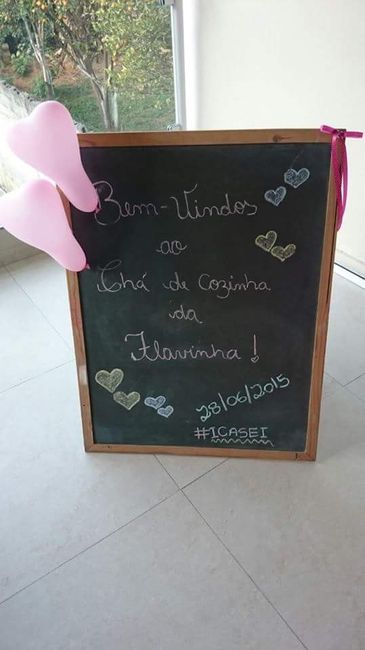 Bem-Vindos
ao
Chá de Cozinha
da
Flavinha!
28/06/2015
#ICASEI